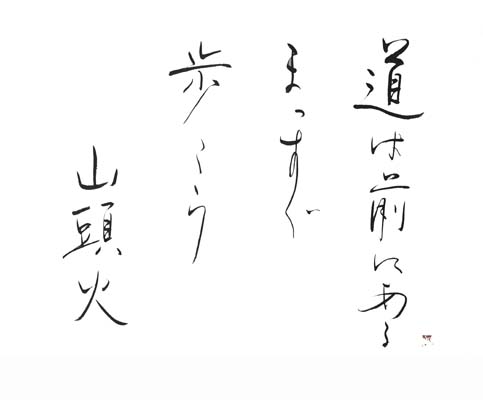 道は前にある
まっすぐ
歩こう
山頭火